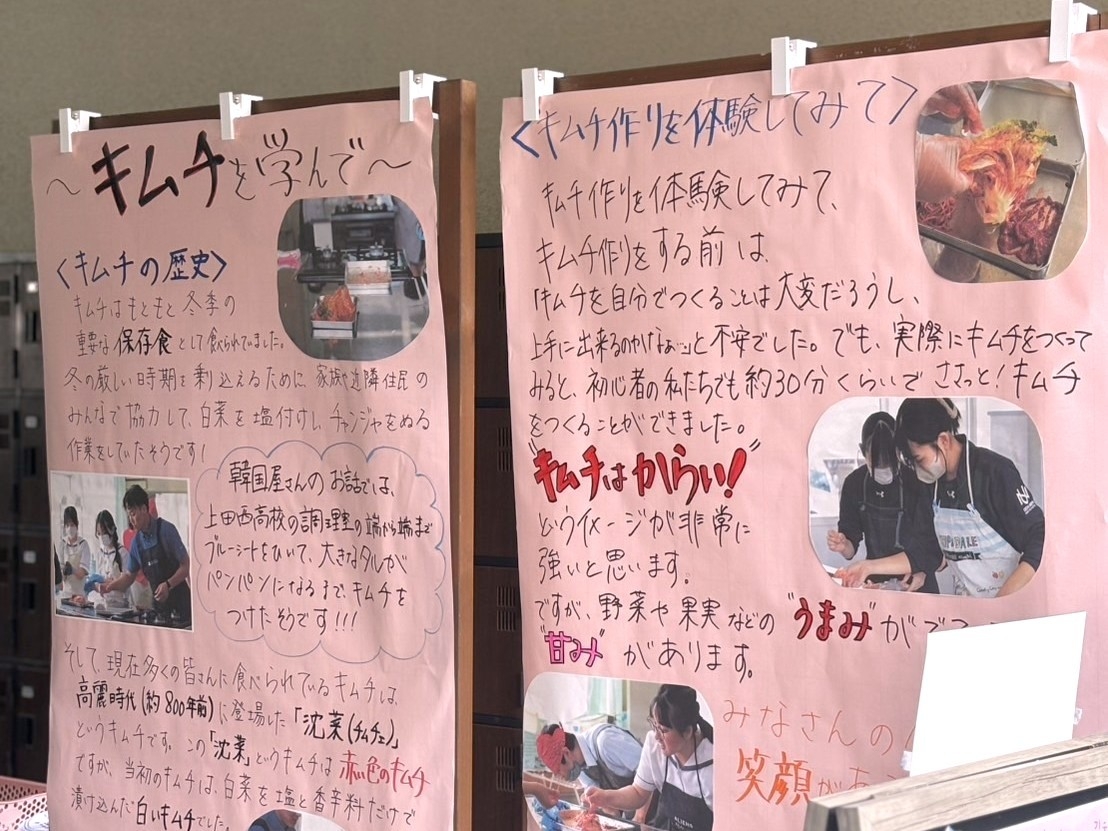 ～キムチを学んで～
〈キムチの歴史〉
キムチはもともと冬季の
重要な保存食として食べられていました。
冬の厳しい時期を乗り込えるために、家族や近隣住民の
みんなで協力して、白菜を塩付けし、チャンジャをぬる
作業をしていたそうです！
韓国屋さんのお話では、
上田西高校の調理室の端から端まで
ブルーシートをひいて、大きなタルが
パンパンになるまで、キムチを
つけたそうです!!!
そして、現在多くの皆さんに食べられているキムチは、
高麗時代(約800年前)に登場した「沈菜(チムチェ)」
というキムチです。この「沈菜」というキムチは赤色のキムチ
ですが、当初のキムチは、白菜を塩と香辛料だけで
漬け込んだ白いキムチでした。
〈キムチ作りを体験してみて〉
キムチ作りを体験してみて、
キムチ作りをする前は、
「キムチを自分でつくることは大変だろうし、
上手に出来るのかなぁ…」と不安でした。でも、実際にキムチをつくって
みると、初心者の私たちでも約30分くらいでささっと！キムチ
をつくることができました。
"キムチはからい！"
というイメージが非常に
強いと思います。
ですが、野菜や果実などの"うまみ"がで
"甘み"があります。
みなさんの
笑顔があ